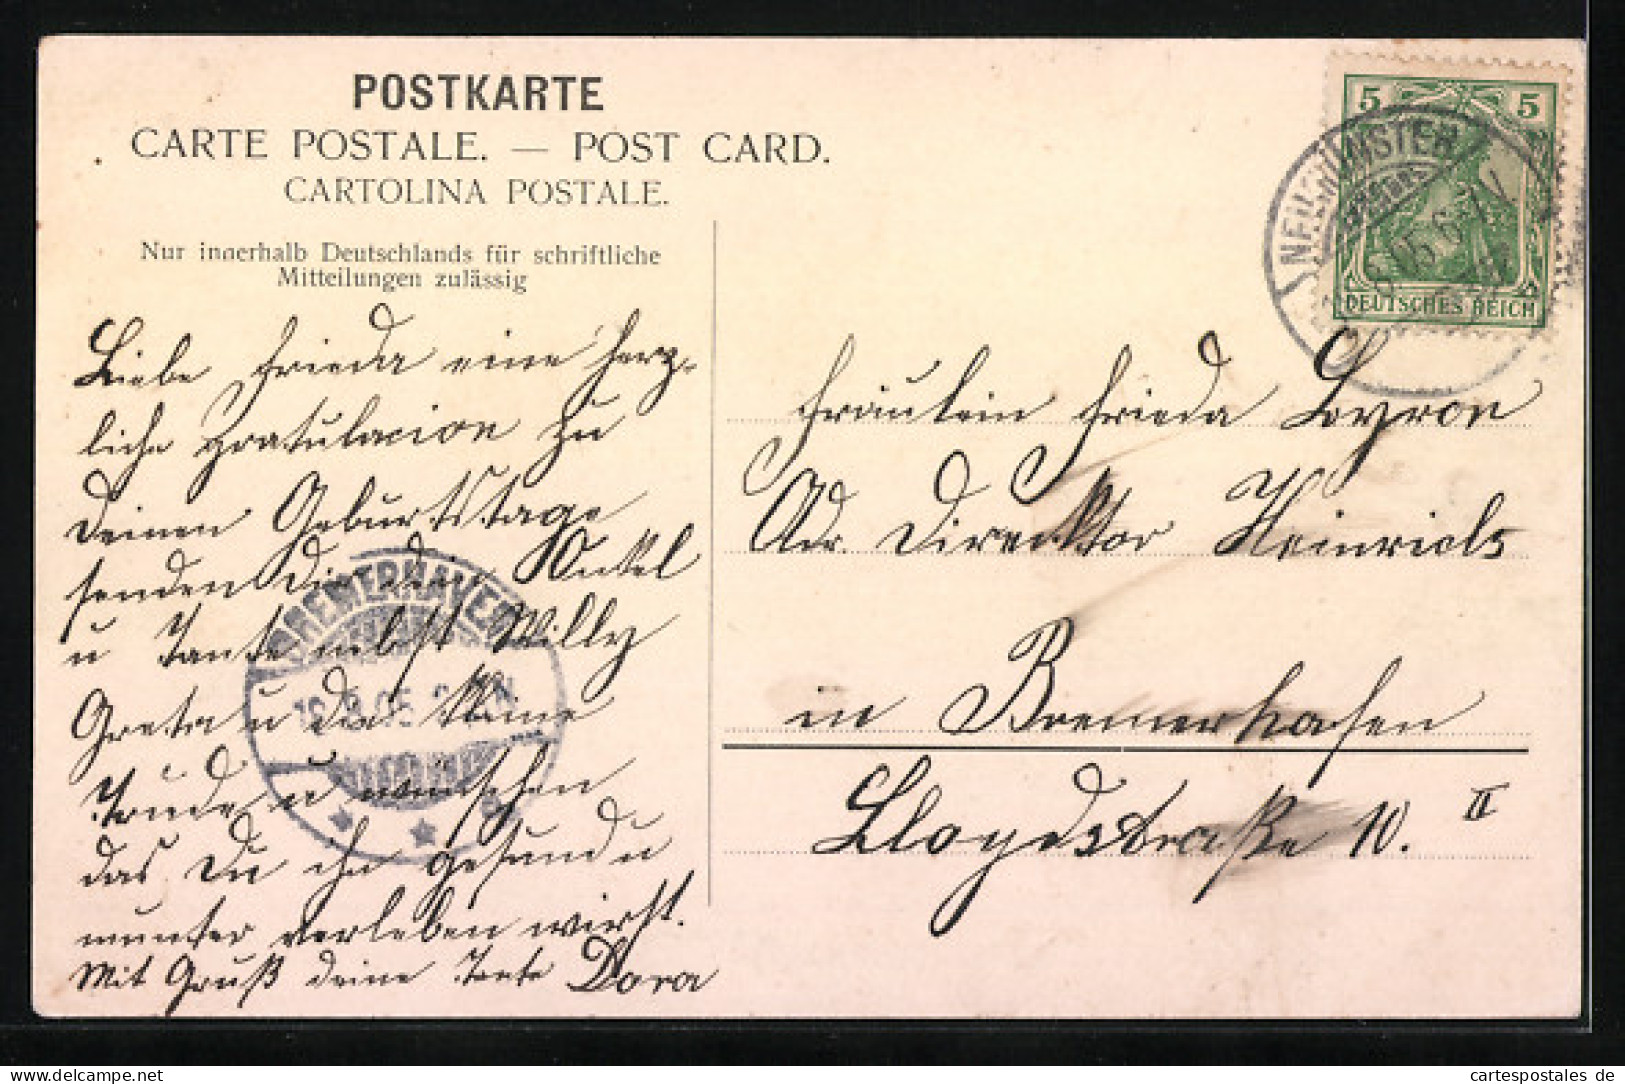 POSTKARTE
CARTE POSTALE. — POST CARD.
CARTOLINA POSTALE.
Nur innerhalb Deutschlands für schriftliche
Mitteilungen zulässig
Liebe Frieda eine herz-
liche Gratulacion zu
Deinen Geburtstage
senden Dir dein Onkel
u Tante nebst Willy
Greta u das kleine
Trude u wünschen
das Du ihn gesund u
munter verleben wirst.
Mit Gruß deine Tante Dora
5 5
DEUTSCHES REICH
NEUMÜNSTER
05. 6-7 N
BREMERHAVEN
05
Fräulein Frieda
Adr. Direktor Heinrichs
in Bremerhafen
Lloydstraße 10. II
cartespostales de